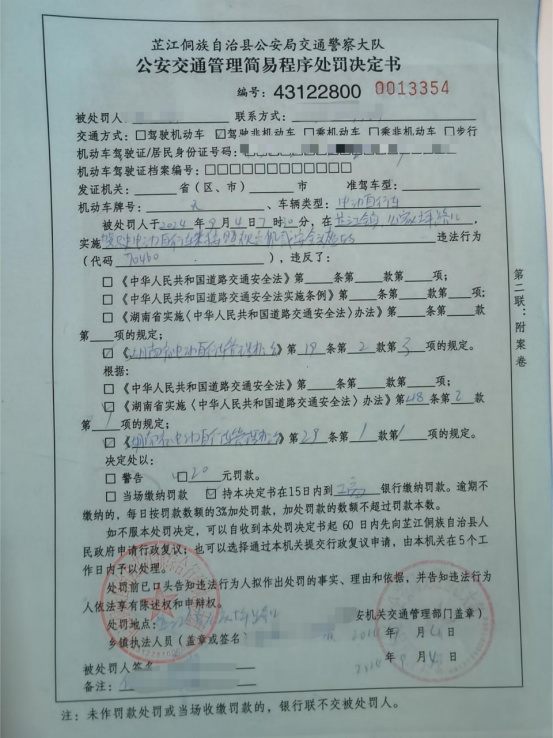 芷江侗族自治县公安局交通警察大队
公安交通管理简易程序处罚决定书
编号：43122800 0013354
被处罚人： 联系方式：
交通方式：□驾驶机动车 ☑驾驶非机动车 □乘机动车 □乘非机动车 □步行
机动车驾驶证/居民身份证号码：
机动车驾驶证档案编号：□□□□□□□□□□□□
发证机关： 省（区、市） 市 准驾车型：
机动车牌号：无、车辆类型：电动自行车
被处罚人于2024年9月4日7时20分，在芷江镇
实施 违法行为
（代码 70460 ），违反了：
□《中华人民共和国道路交通安全法》第 条第 款第 项；
□《中华人民共和国道路交通安全法实施条例》第 条第 款第 项；
□《湖南省实施〈中华人民共和国道路交通安全法〉办法》第 条第 款
第 项的规定；
☑《湖南省电动自行车管理办法》第19条第2款第3项的规定。
根据：
□《中华人民共和国道路交通安全法》第 条第 款第 项；
☑《湖南省实施〈中华人民共和国道路交通安全法〉办法》第48条第2款
第 项的规定；
☑《湖南省电动自行车管理办法》第29条第1款第1项的规定。
决定处以：
□ 警告 □ 20 元罚款。
□ 当场缴纳罚款 ☑ 持本决定书在15日内到 银行缴纳罚款。逾期不
缴纳的，每日按罚款数额的3%加处罚款，加处罚款的数额不超过罚款本数。
如不服本处罚决定，可以自收到本处罚决定书起 60 日内先向芷江侗族自治县人
民政府申请行政复议；也可以选择通过本机关提交行政复议申请，由本机关在5个工
作日内予以处理。
处罚前已口头告知违法行为人拟作出处罚的事实、理由和依据，并告知违法行为
人依法享有陈述权和申辩权。
处罚地点：
安机关交通管理部门盖章）
乡镇执法人员（盖章或签名 2024年9月4日
被处罚人签名 2024年9月4日
备注：
注：未作罚款处罚或当场收缴罚款的，银行联不交被处罚人。
第二联：附案卷